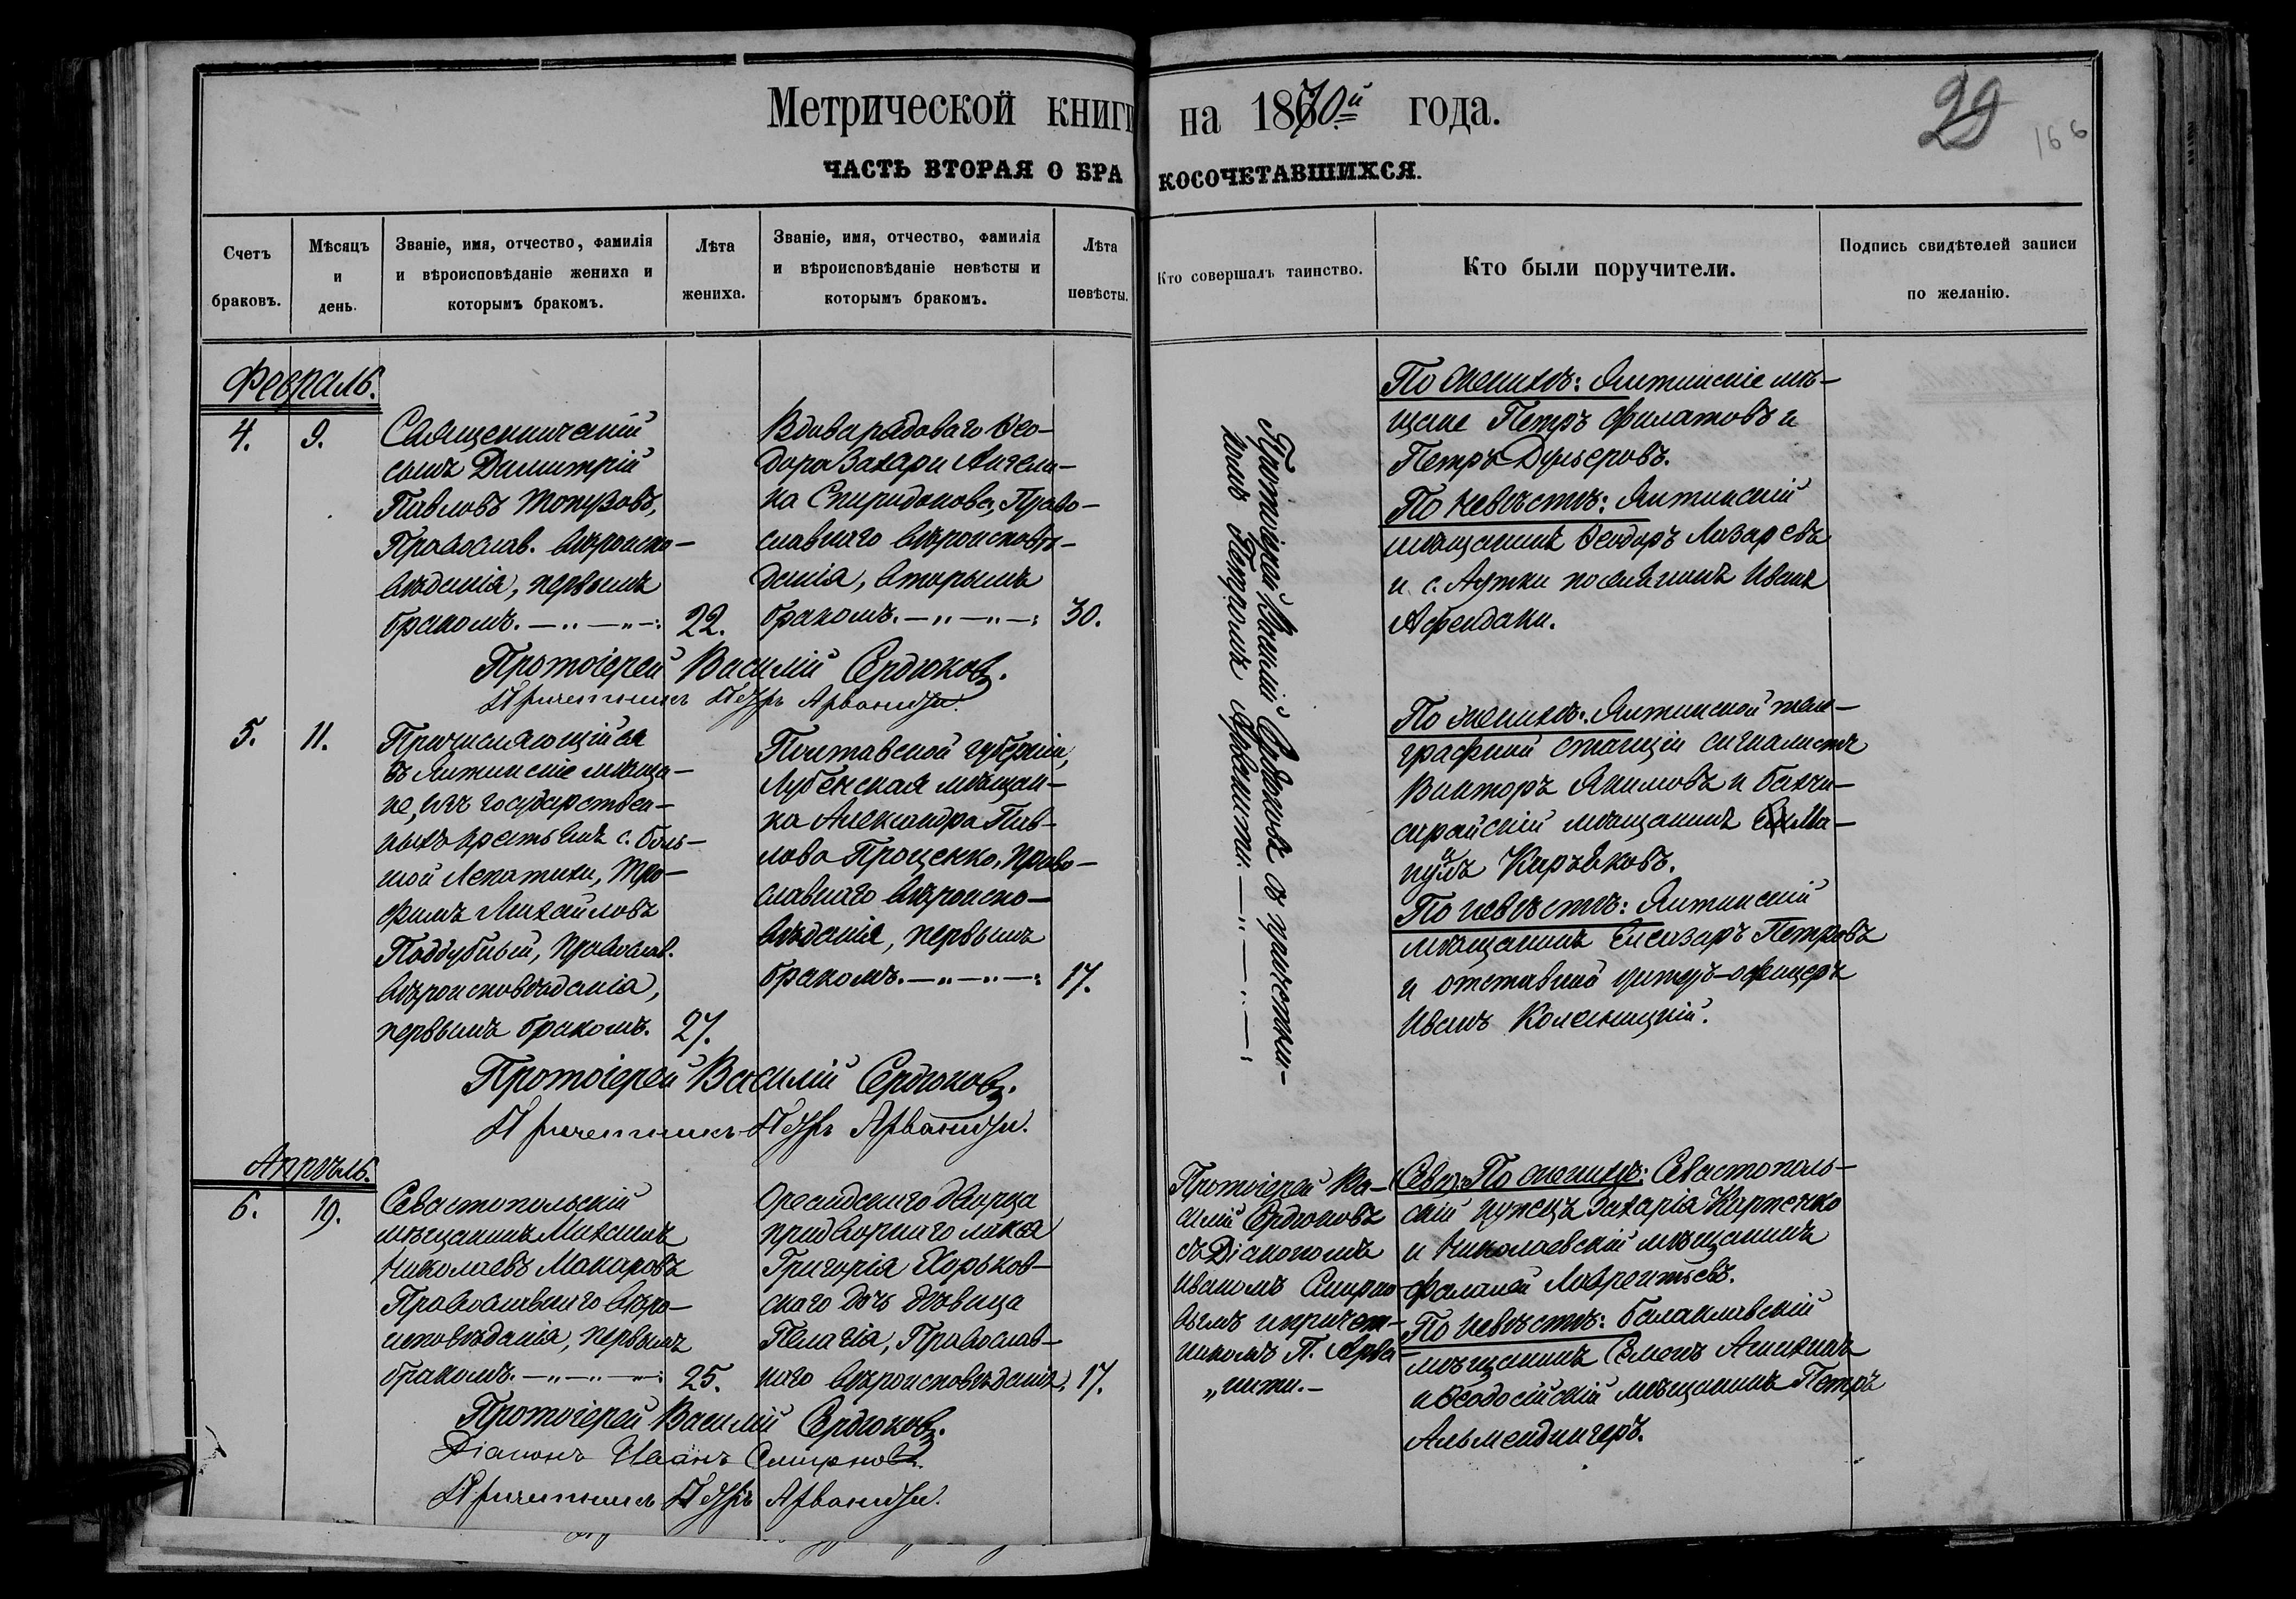 Метрической книги на 1870й года.
29
166
ЧАСТЬ ВТОРАЯ О БРАКОСОЧЕТАВШИХСЯ.
Счетъ
браковъ.
Мѣсяцъ
и
день.
Званіе, имя, отчество, фамилія
и вѣроисповѣданіе жениха и
которымъ бракомъ.
Лѣта
жениха.
Званіе, имя, отчество, фамилія
и вѣроисповѣданіе невѣсты и
которымъ бракомъ.
Лѣта
невѣсты.
Кто совершалъ таинство.
Кто были поручители.
Подпись свидѣтелей записи
по желанію.
Февраль.
4.
9.
Священническій
сынъ Димитрій
Павловъ Топузовъ,
Православ. вѣроиспо-
вѣданія, первымъ
бракомъ.
22.
Вдова рядоваго Ѳео-
дора Захари Ангели-
на Спиридонова, Право-
славнаго вѣроисповѣ-
данія, вторымъ
бракомъ.
30.
Протоіерей Василій Сердюковъ съ причетни-
комъ Петромъ Арванити.
По женихѣ: Ялтинскіе мѣ-
щане Петръ Филатовъ и
Петръ Дульеровъ.
По невѣстѣ: Ялтинскій
мѣщанинъ Ѳеодоръ Лазаревъ
и с. Аутки поселянинъ Иванъ
Афендаки.
Протоіерей Василій Сердюковъ.
Причетникъ Петръ Арванити.
5.
11.
Причисляющійся
въ Ялтинскіе мѣща-
не, изъ государствен-
ныхъ крестьянъ с. Боль-
шой Лепатихи, Тро-
фимъ Михайловъ
Поддубный, Православ.
вѣроисповѣданія,
первымъ бракомъ.
27.
Полтавской губерніи,
Лубенская мѣщан-
ка Александра Пав-
лова Проценко, Право-
славнаго вѣроиспо-
вѣданія, первымъ
бракомъ.
17.
По женихѣ: Ялтинской теле-
графной станціи сигналистъ
Викторъ Якимовъ и Бахчи-
сарайскій мѣщанинъ Ма-
нуилъ Кирьяковъ.
По невѣстѣ: Ялтинскій
мѣщанинъ Елеазаръ Петровъ
и отставной унтеръ-офицеръ
Иванъ Коленицкій.
Протоіерей Василій Сердюковъ.
Причетникъ Петръ Арванити.
Апрѣль.
6.
19.
Севастопольскій
мѣщанинъ Михаилъ
Николаевъ Макаровъ
Православнаго вѣро-
исповѣданія, первымъ
бракомъ.
25.
Ореандскаго дворца
придворнаго лакея
Григорія Хорьков-
скаго дочь дѣвица
Пелагія, Православ-
наго вѣроисповѣданія.
17.
Протоіерей Ва-
силій Сердюковъ
съ Діакономъ
Иваномъ Смирно-
вымъ и причет-
никомъ П. Арва-
нити.
По женихѣ: Севастополь-
скій купецъ Захарія Карпенко
и Николаевскій мѣщанинъ
Фалалей Лаврентьевъ.
По невѣстѣ: Балаклавскій
мѣщанинъ Семенъ Аникинъ
и Ѳеодосійскій мѣщанинъ Петръ
Альмендингеръ.
Протоіерей Василій Сердюковъ.
Діаконъ Иванъ Смирновъ.
Причетникъ Петръ Арванити.